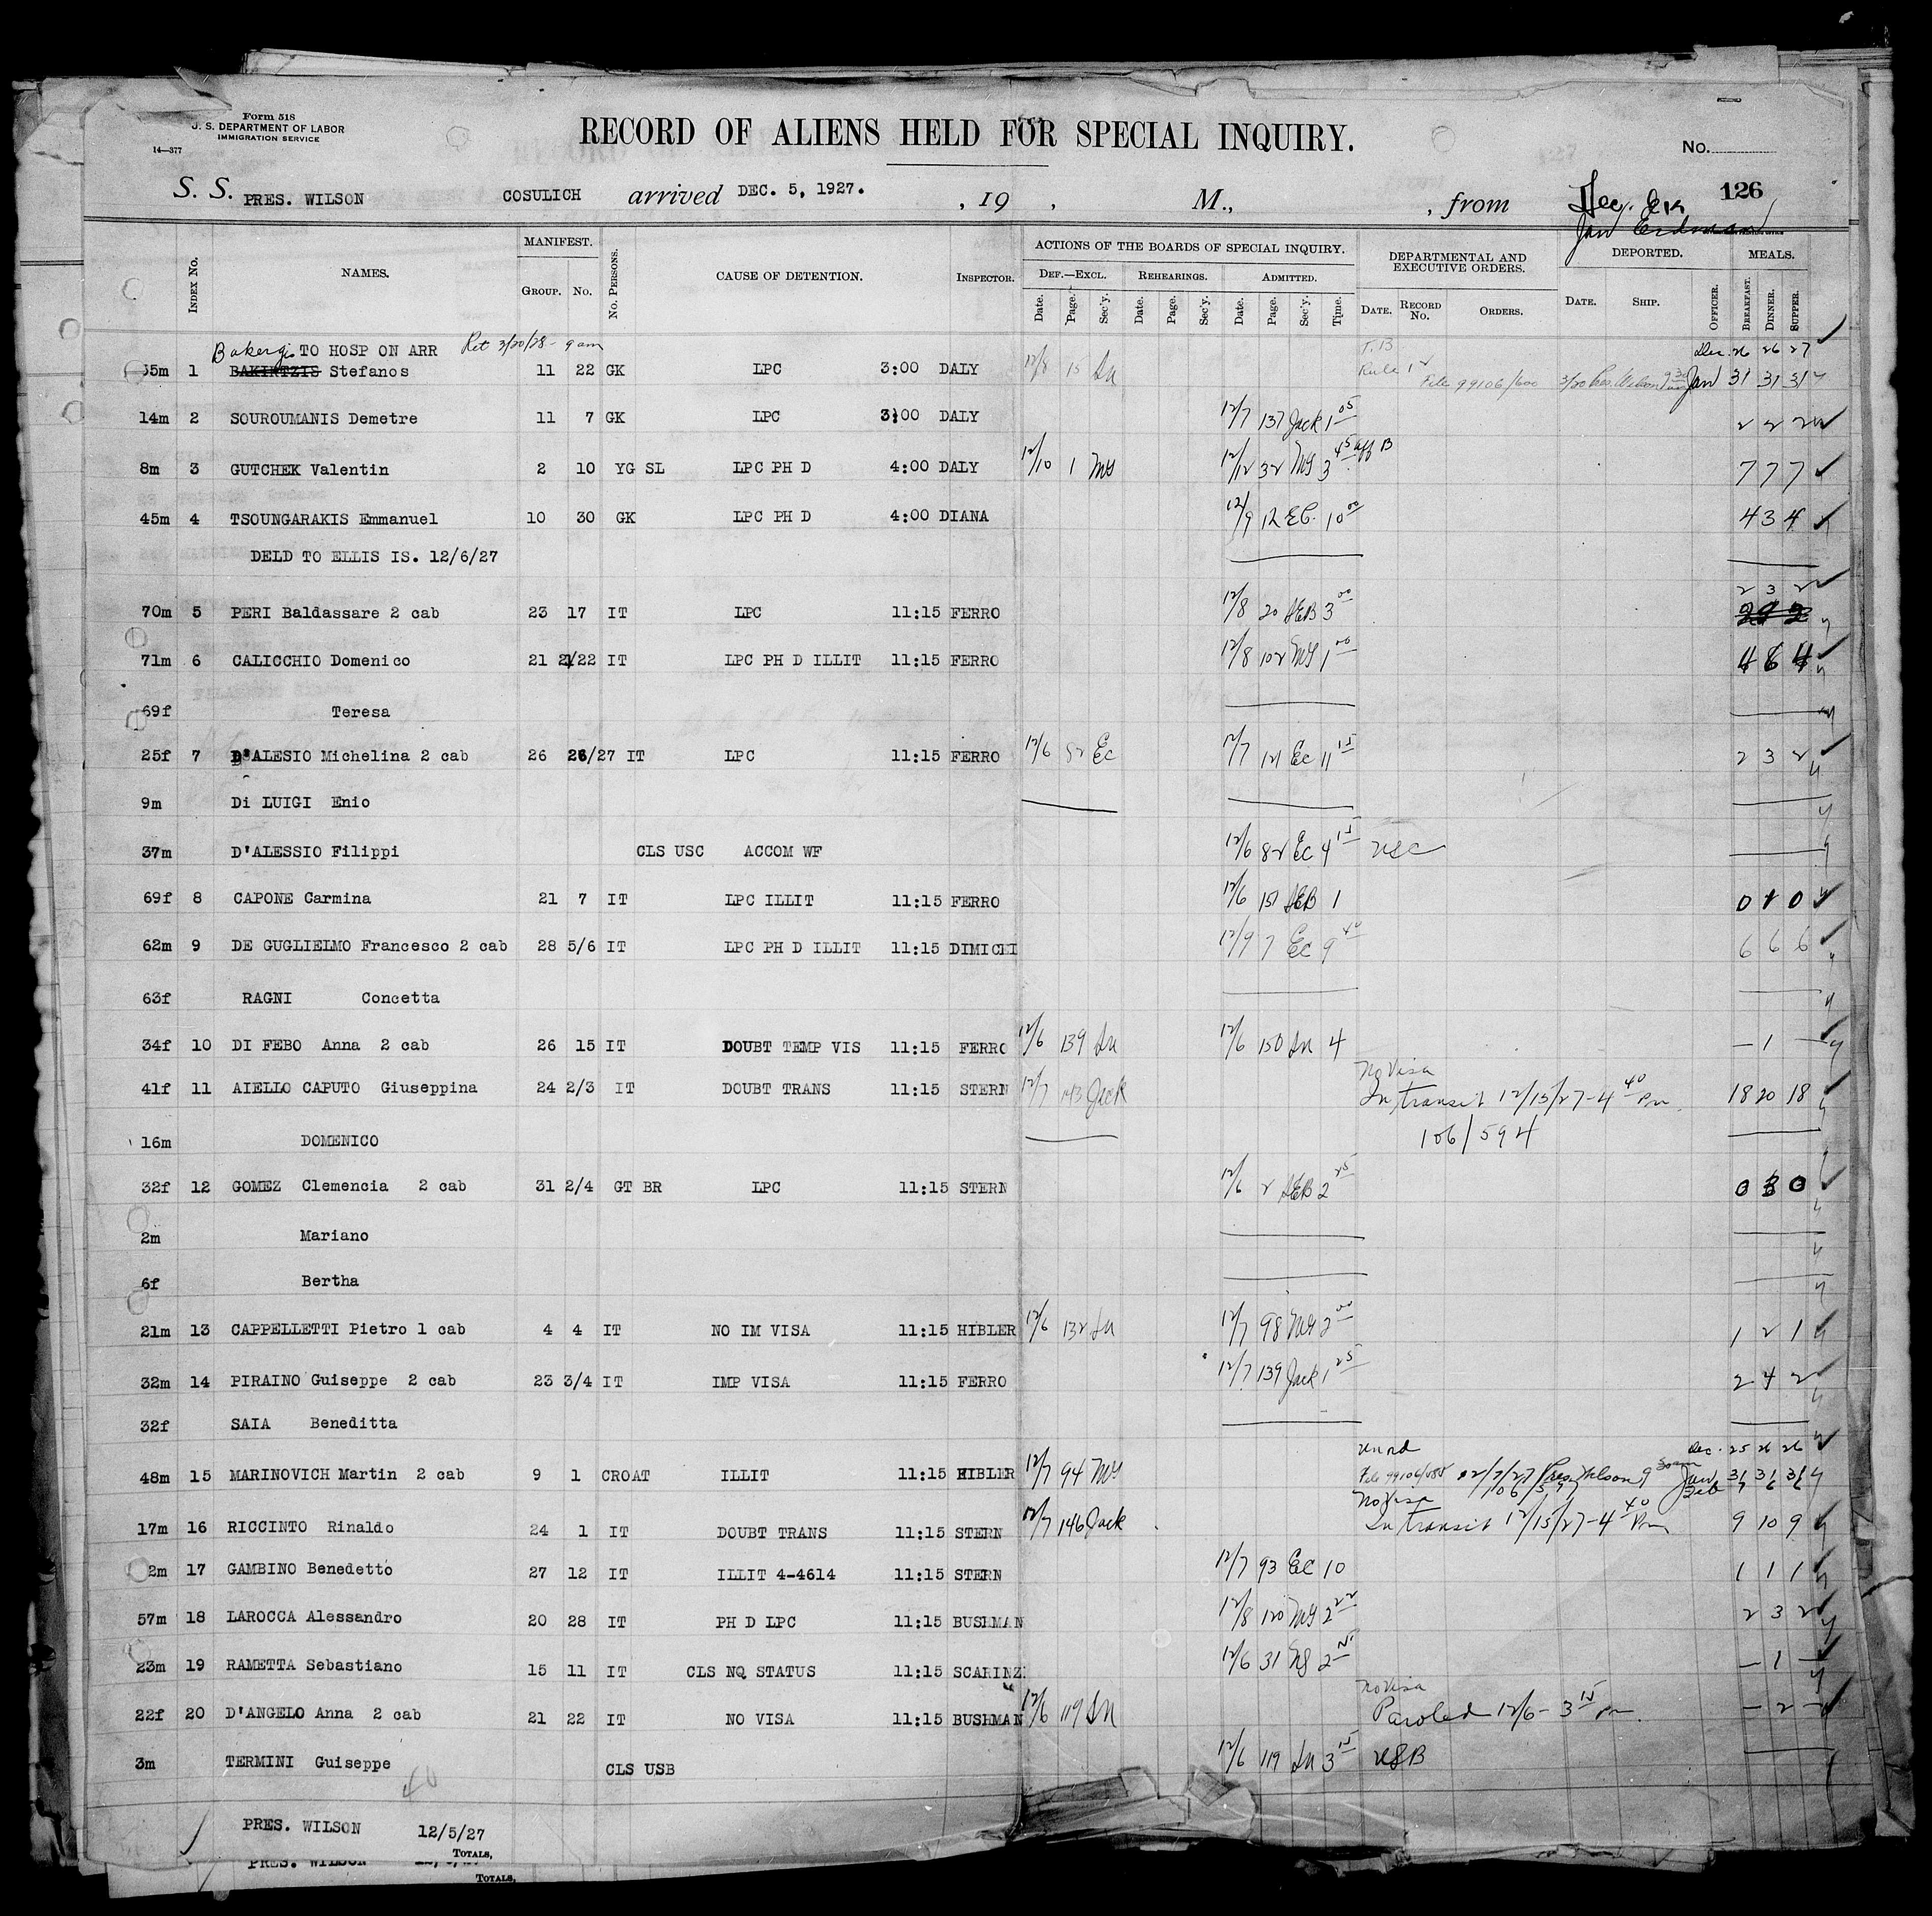 Form 518
U. S. DEPARTMENT OF LABOR
IMMIGRATION SERVICE
14—377
RECORD OF ALIENS HELD FOR SPECIAL INQUIRY.
No.
126
S. S. PRES. WILSON COSULICH arrived DEC. 5, 1927. , 19 , M., , from
Jan Erdman
Index No. NAMES. MANIFEST. Group. No. No. Persons. CAUSE OF DETENTION. Inspector. ACTIONS OF THE BOARDS OF SPECIAL INQUIRY. Def.—Excl. Date. Page. Sec'y. Rehearings. Date. Page. Sec'y. Admitted. Date. Page. Sec'y. Time. DEPARTMENTAL AND EXECUTIVE ORDERS. Date. Record No. Orders. DEPORTED. Date. Ship. Officer. MEALS. Breakfast. Dinner. Supper.
TO HOSP ON ARR Ret 3/20/28 - 9 am Dec. 26 26 27
55m 1 BAKIRTZIS Stefanos 11 22 GK LPC 3:00 DALY 12/8 15 File 99106/600 3/20 Pres. Wilson Jan 31 31 31
14m 2 SOUROUMANIS Demetre 11 7 GK LPC 3:00 DALY 12/7 137 Jack 1 05 2 2 2
8m 3 GUTCHEK Valentin 2 10 YG SL LPC PH D 4:00 DALY 12/10 1 MG 12/12 32 MG 3 45 aff B 7 7 7
45m 4 TSOUNGARAKIS Emmanuel 10 30 GK LPC PH D 4:00 DIANA 12/9 12 EC 10 00 4 3 4
DELD TO ELLIS IS. 12/6/27
2 3 2
70m 5 PERI Baldassare 2 cab 23 17 IT LPC 11:15 FERRO 12/8 20 SEB 3 00
71m 6 CALICCHIO Domenico 21 21/22 IT LPC PH D ILLIT 11:15 FERRO 12/8 102 MG 1 00 4 6 4
69f Teresa
25f 7 D'ALESIO Michelina 2 cab 26 26/27 IT LPC 11:15 FERRO 12/6 82 EC 12/7 121 EC 11 15 2 3 2
9m Di LUIGI Enio
37m D'ALESSIO Filippi CLS USC ACCOM WF 12/6 82 EC 4 15 USC
69f 8 CAPONE Carmina 21 7 IT LPC ILLIT 11:15 FERRO 12/6 151 SEB 1 0 1 0
62m 9 DE GUGLIELMO Francesco 2 cab 28 5/6 IT LPC PH D ILLIT 11:15 DIMICEI 12/9 7 EC 9 40 6 6 6
63f RAGNI Concetta
34f 10 DI FEBO Anna 2 cab 26 15 IT DOUBT TEMP VIS 11:15 FERRO 12/6 139 12/6 150 4 — 1 —
No Visa
41f 11 AIELLO CAPUTO Giuseppina 24 2/3 IT DOUBT TRANS 11:15 STERN 12/7 143 Jack In transit 12/15/27 - 4 40 Pm 18 20 18
16m DOMENICO 106/594
32f 12 GOMEZ Clemencia 2 cab 31 2/4 GT BR LPC 11:15 STERN 12/6 2 SEB 2 25 0 3 0
2m Mariano
6f Bertha
21m 13 CAPPELLETTI Pietro 1 cab 4 4 IT NO IM VISA 11:15 HIBLER 12/6 132 12/7 98 MG 2 00 1 2 1
32m 14 PIRAINO Guiseppe 2 cab 23 3/4 IT IMP VISA 11:15 FERRO 12/7 139 Jack 1 25 2 4 2
32f SAIA Beneditta
Dec. 25 26 26
48m 15 MARINOVICH Martin 2 cab 9 1 CROAT ILLIT 11:15 HIBLER 12/7 94 MG Pres Wilson 9 Jan 31 31 31
No Visa 106/597 Feb 7 6 6
17m 16 RICCINTO Rinaldo 24 1 IT DOUBT TRANS 11:15 STERN 12/7 146 Jack In transit 12/15/27 - 4 40 Pm 9 10 9
2m 17 GAMBINO Benedetto 27 12 IT ILLIT 4-4614 11:15 STERN 12/7 93 EC 10 1 1 1
57m 18 LAROCCA Alessandro 20 28 IT PH D LPC 11:15 BUSHMAN 12/8 120 MG 2 22 2 3 2
23m 19 RAMETTA Sebastiano 15 11 IT CLS NQ STATUS 11:15 SCARINZ 12/6 31 2 15 — 1 —
No Visa
22f 20 D'ANGELO Anna 2 cab 21 22 IT NO VISA 11:15 BUSHMAN 12/6 119 Paroled 12/6 - 3 15 Pm — 2 —
3m TERMINI Guiseppe CLS USB 12/6 119 3 15 USB
40
PRES. WILSON 12/5/27
Totals,
PRES. WILSON
Totals,